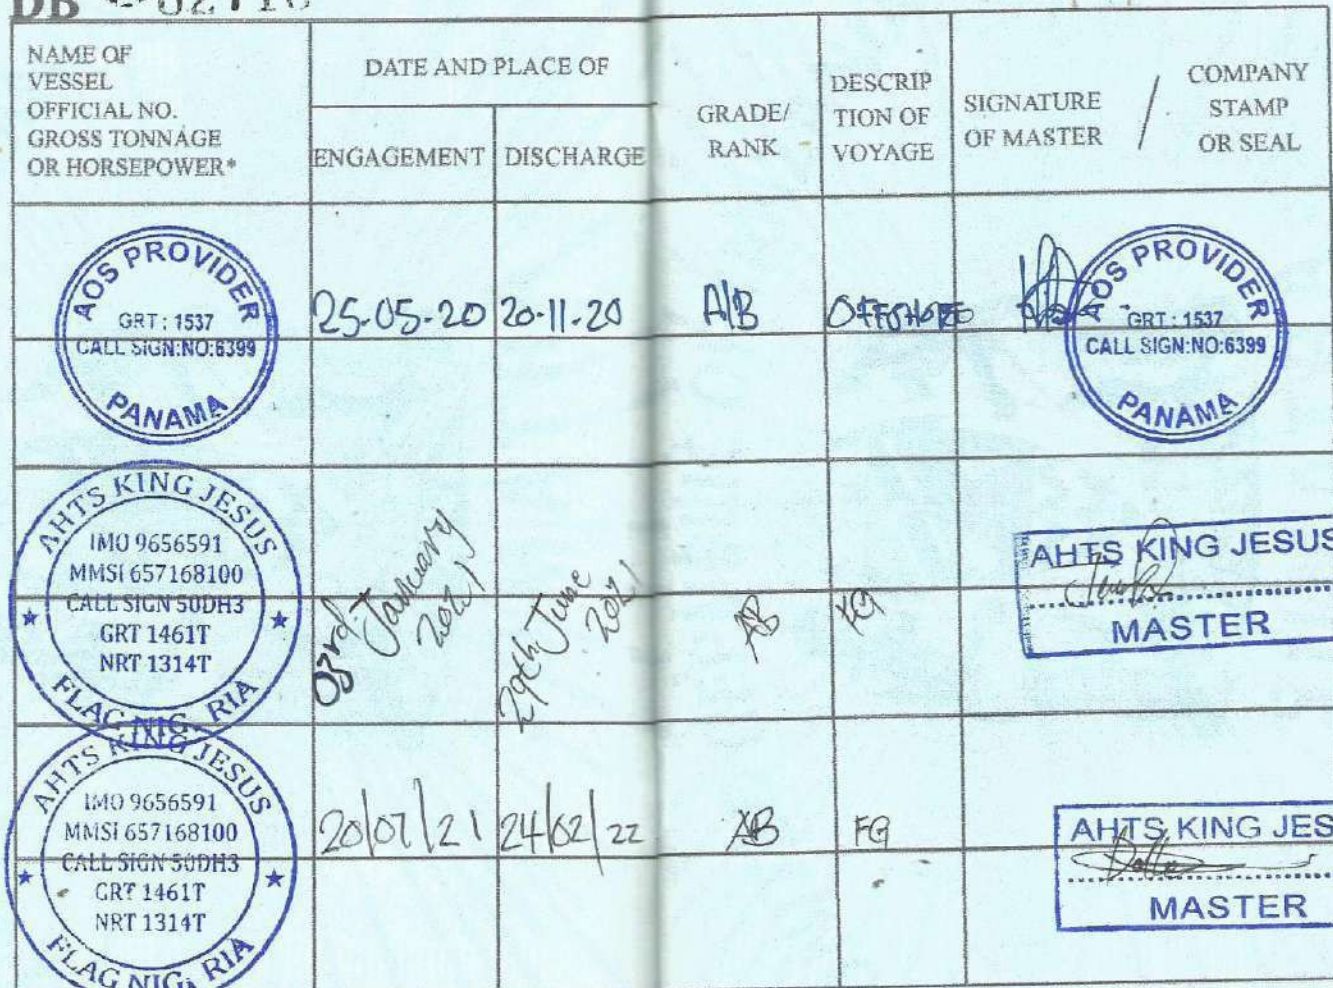 DB
NAME OF
VESSEL
OFFICIAL NO.
GROSS TONNAGE
OR HORSEPOWER*
DATE AND PLACE OF
ENGAGEMENT
DISCHARGE
GRADE/
RANK
DESCRIP
TION OF
VOYAGE
SIGNATURE
OF MASTER
/
COMPANY
STAMP
OR SEAL
AOS PROVIDER
GRT : 1537
CALL SIGN:NO:6399
PANAMA
25-05-20
20-11-20
A/B
OFFSHORE
AOS PROVIDER
GRT : 1537
CALL SIGN:NO:6399
PANAMA
AHTS KING JESUS
IMO 9656591
MMSI 657168100
CALL SIGN 50DH3
GRT 1461T
NRT 1314T
FLAG NIG. RIA
03rd January
2021
29th June
2021
AB
AHTS KING JESUS
MASTER
AHTS KING JESUS
IMO 9656591
MMSI 657168100
CALL SIGN 50DH3
GRT 1461T
NRT 1314T
FLAG NIG. RIA
20/07/21
24/02/22
AB
FG
AHTS KING JES
MASTER